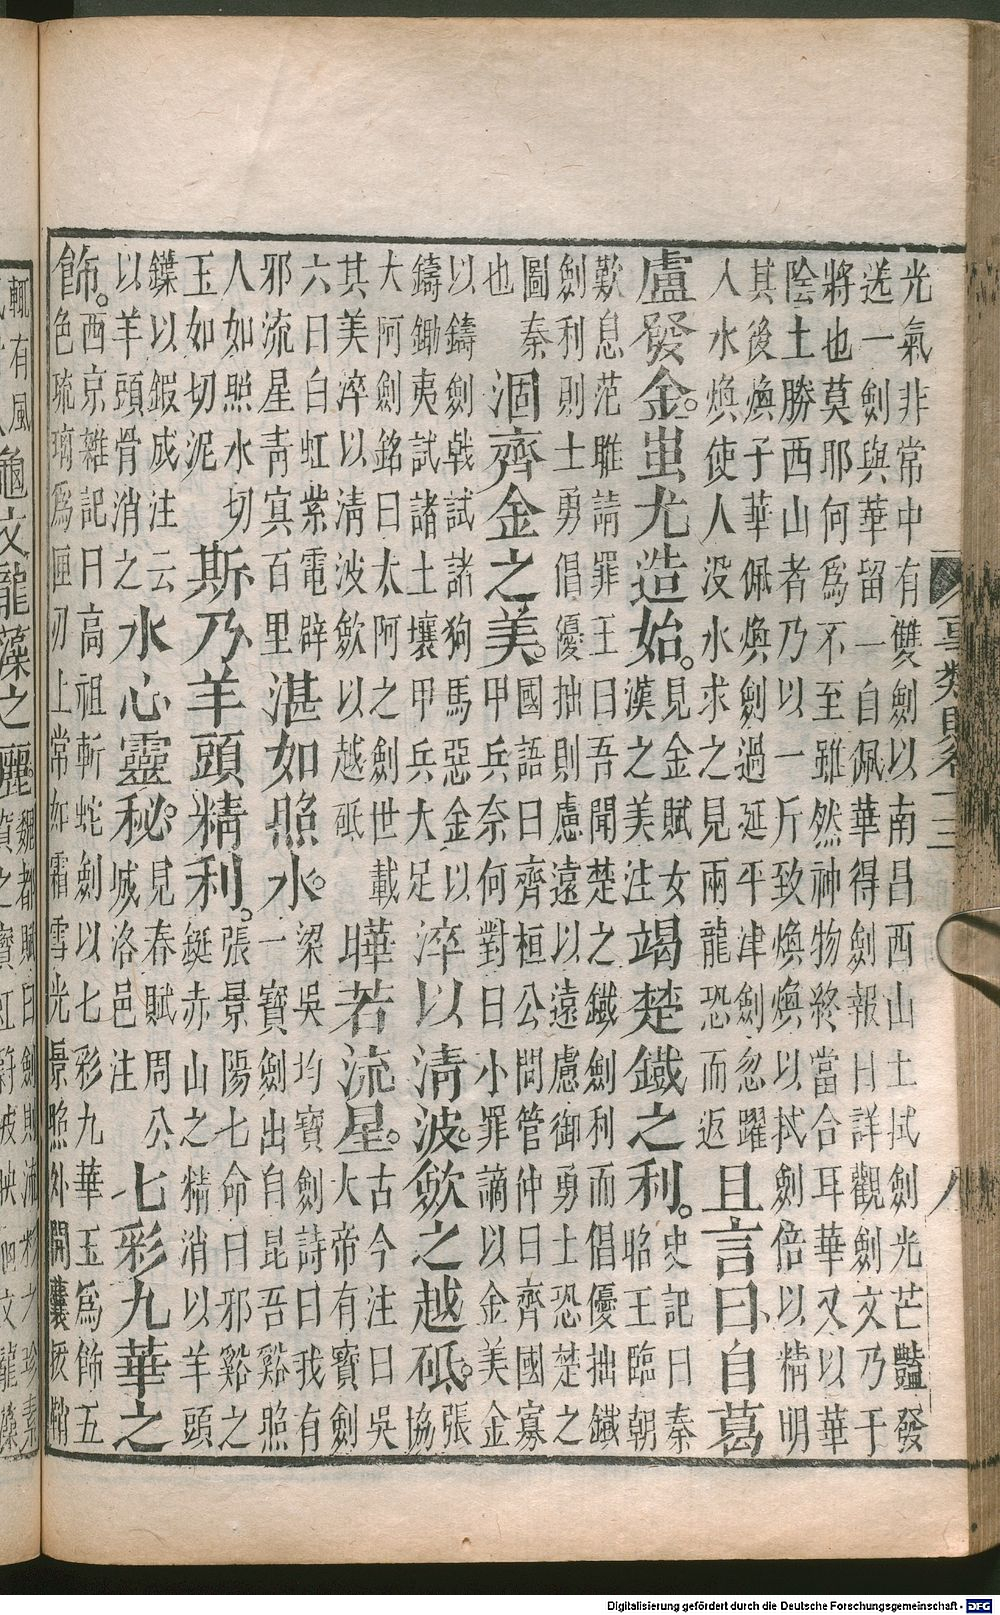 光氣非常中有雙劍以南昌西山土拭劍光芒豔發
送一劍與華留一自佩華得劍報曰詳觀劍文乃干
將也莫耶何爲不至雖然神物終當合耳華又以華
陰土勝西山者乃以一斤致煥煥以拭劍倍以精明
其後煥子華佩煥劍過延平津劍忽躍
人水煥使人沒水求之見兩龍恐而返
且言曰自葛
盧發金蚩尤造始
見金賦女
漢之美注
竭楚鐵之利
史記曰秦
昭王臨朝
歎息范睢請罪王曰吾聞楚之鐵劍利而倡優拙鐵
劍利則士勇倡優拙則慮遠以遠慮御勇士恐楚之
圖秦
也
涸齊金之美
國語曰齊桓公問管仲曰齊國寡
甲兵奈何對曰小罪謫以金美金
以鑄劍戟試諸狗馬惡金以
鑄鋤夷試諸土壤甲兵大足
淬以清波斂之越砥
張
協
大阿劍銘曰太阿之劍世載
其美淬以清波斂以越砥
曄若流星
古今注曰吳
大帝有寶劍
六曰白虹紫電辟
邪流星青冥百里
湛如照水
梁吳均寶劍詩曰我有
一寶劍出自昆吾谿照
人如照水切
玉如切泥
斯乃羊頭精利
張景陽七命曰邪谿之
鋌赤山之精消以羊頭
鏷以鍜成注云
以羊頭骨消之
水心靈秘
見春賦周公
城洛邑注
七彩九華之
飾
西京雜記曰高祖斬蛇劍以七彩九華玉爲飾五
色琉璃爲匣刃上常如霜雪光景照外開囊拔鞘
輒有風
龜文龍藻之麗
魏都賦曰劍則流彩之珍素
事類賦卷十三
八
Digitalisierung gefördert durch die Deutsche Forschungsgemeinschaft - DFG